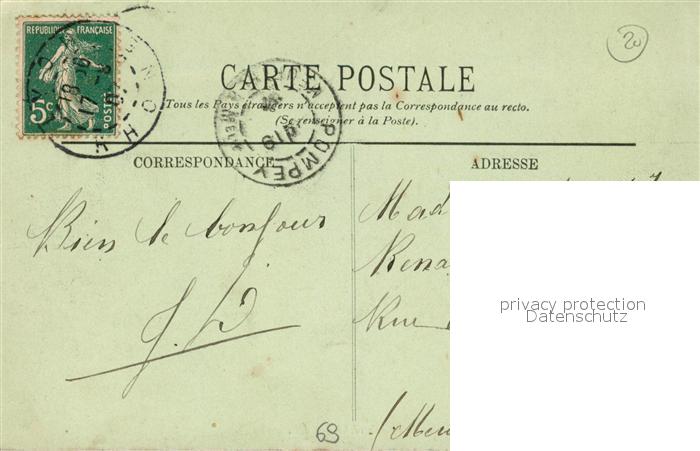 20
RÉPUBLIQUE FRANÇAISE
5c
POSTES
CARTE POSTALE
Tous les Pays étrangers n'acceptent pas la Correspondance au recto.
(Se renseigner à la Poste).
POMPEY
CORRESPONDANCE
ADRESSE
Bien le bonjour
J. D
Mad
Rena
Rue
(Meu
privacy protection
Datenschutz
69